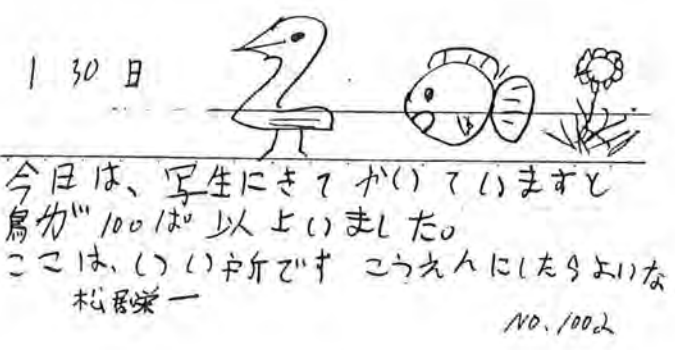 1 30日
今日は、写生にきて かいていますと
鳥が100ぱ 以上いました。
ここは、いい所です こうえんにしたらよいな
松居栄一
NO.1002